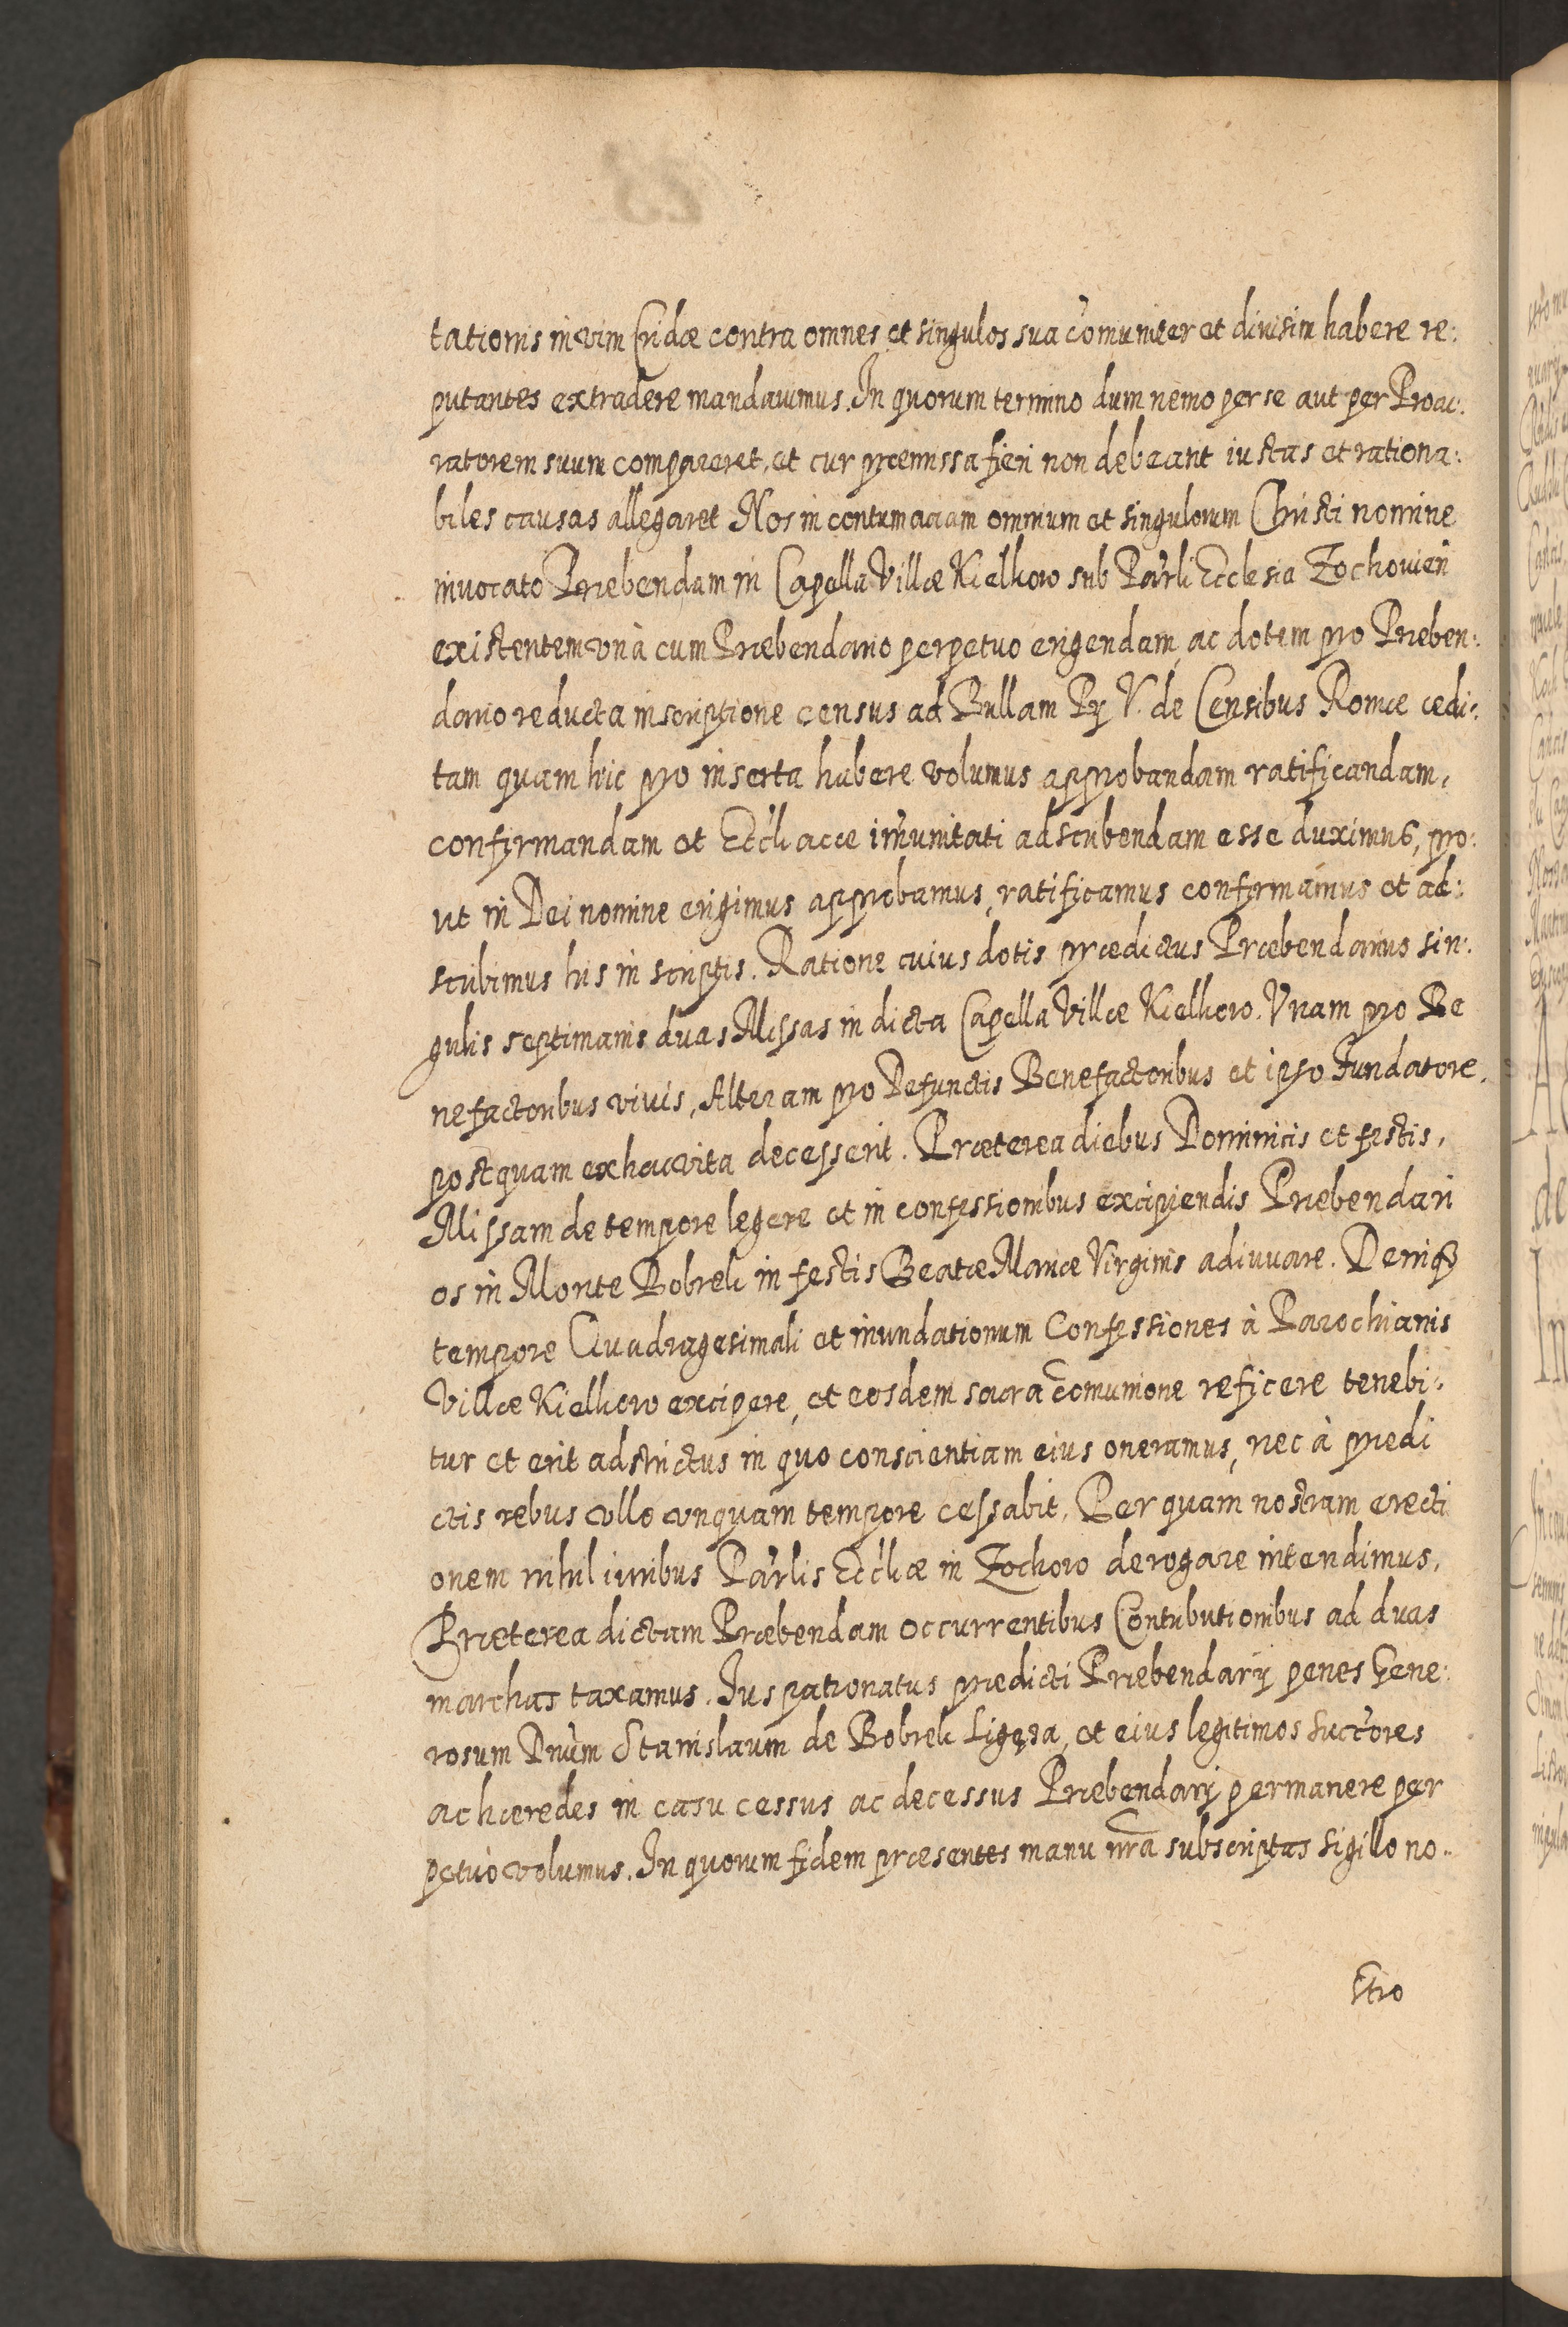 tationis in vim Cridæ contra omnes et singulos sua com̃uniter et diuisim habere re:
putantes extradere mandauimus. In quorum termino dum nemo per se aut per Procu:
ratorem suum compareret, et cur præmissa fieri non debeant iustas et rationa:
biles causas allegaret Nos in contumaciam omnium et singulorum Christi nomine
inuocato Præbendam in Capella Villæ Kielkow sub Par̃li Ecclesia Zochouien̄
existentem vnà cum Præbendario perpetuo erigendam, ac dotem pro Præben:
dario reducta inscriptione census ad Bullam Pij V. de Censibus Romæ ædi:
tam quam hic pro inserta habere volumus approbandam ratificandam,
confirmandam et Eccl̃iacæ im̃unitati adscribendam esse duximus, pro:
ut in Dei nomine erigimus approbamus, ratificamus confirmamus et ad:
scribimus his in scriptis. Ratione cuius dotis prædictus Præbendarius sin:
gulis septimanis duas Missas in dicta Capella Villæ Kielkow. Vnam pro Be
nefactoribus viuis, Alteram pro Defunctis Benefactoribus et ipso Fundatore,
postquam ex hac vita decesserit. Præterea diebus Dominicis et festis,
Missam de tempore legere et in confessionibus excipiendis Præbendari
os in Monte Bobrek in festis Beatæ Mariæ Virginis adiuuare. Deniq3
tempore Quadragesimali et inundationum Confessiones à Parochianis
Villæ Kielkow excipere, et eosdem sacra com̃unione reficere tenebi:
tur et erit adstrictus in quo conscientiam eius oneramus, nec à prædi
ctis rebus vllo vnquam tempore cessabit. Per quam nostram erecti
onem nihil iuribus Par̃lis Eccl̃iæ in Zochow derogare intendimus.
Præterea dictam Præbendam occurrentibus Contributionibus ad duas
marchas taxamus. Ius patronatus prædicti Præbendarij penes Gene:
rosum Dn̄um Stanislaum de Bobrek Ligęza, et eius legitimos succ̃ores
ac hæredes in casu cessus ac decessus Præbendarij permanere per
petuò volumus. In quorum fidem præsentes manu nr̄a subscriptas sigillo no..
stro